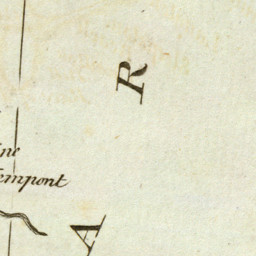 R
ine
empont
A